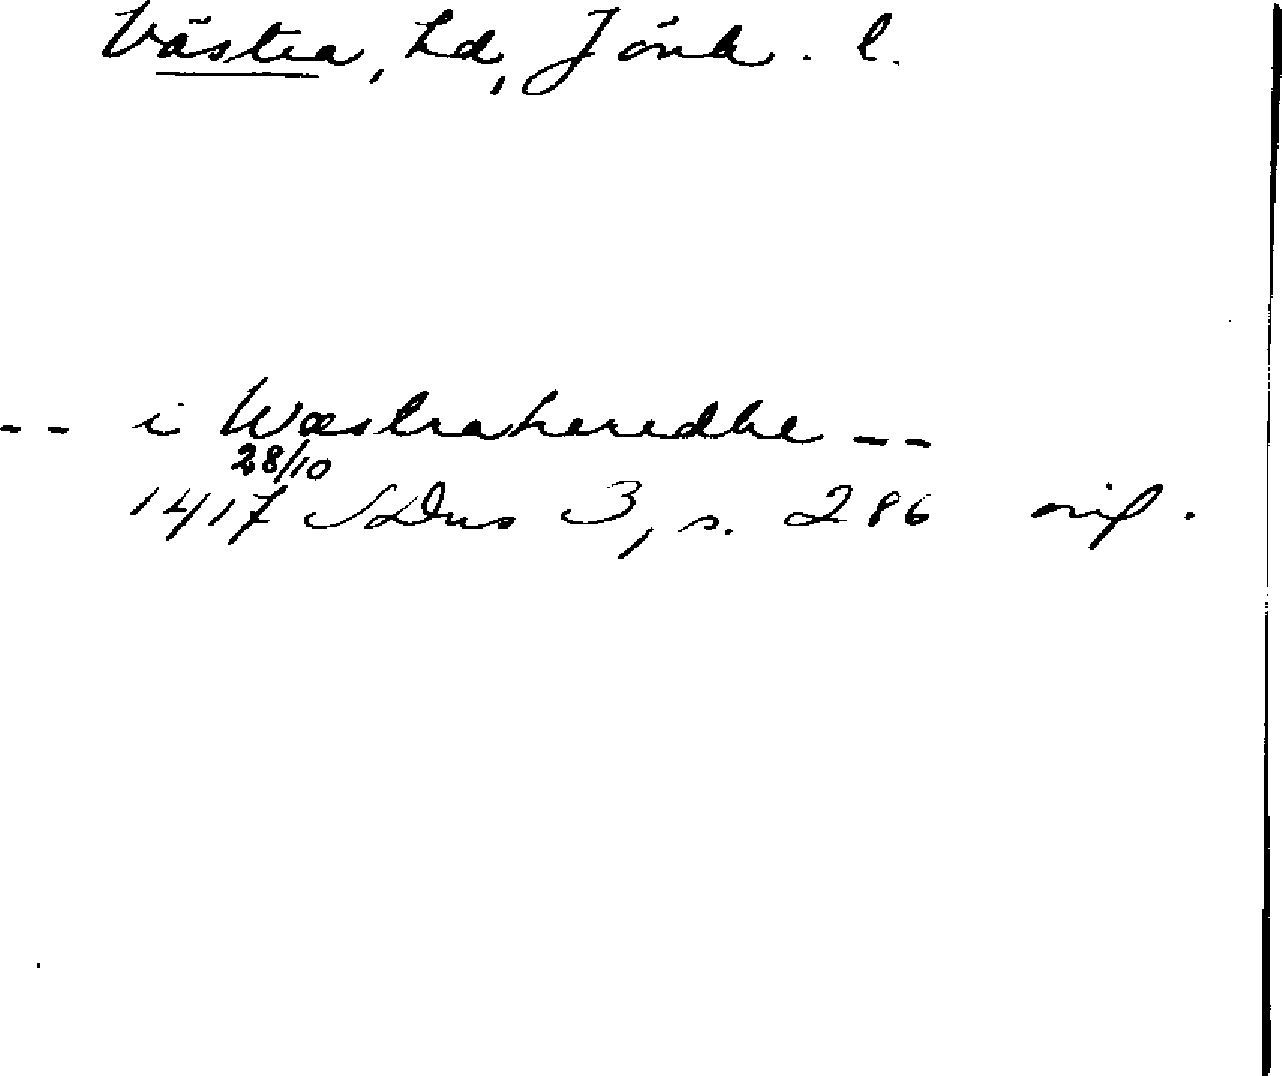 Västra, hd, Jönk. l.
-- i Wæstraheredhe --
28/10
1417 SDns 3, s. 286 orig.